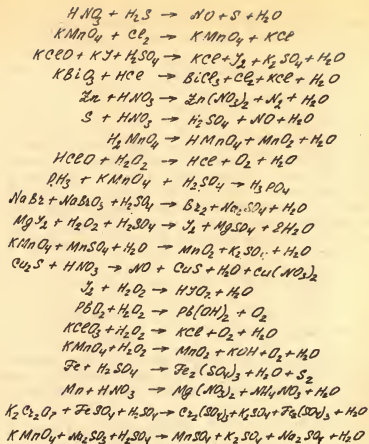 HNO3 + H2S → NO + S + H2O
KMnO4 + Cl2 → KMnO4 + KCl
KClO + KJ + H2SO4 → KCl + J2 + K2SO4 + H2O
KBiO3 + HCl → BiCl3 + Cl2 + KCl + H2O
Zn + HNO3 → Zn(NO3)2 + N2 + H2O
S + HNO3 → H2SO4 + NO + H2O
H2MnO4 → HMnO4 + MnO2 + H2O
HClO + H2O2 → HCl + O2 + H2O
PH3 + KMnO4 + H2SO4 → H3PO4
NaBr + NaBrO3 + H2SO4 → Br2 + Na2SO4 + H2O
MgJ2 + H2O2 + H2SO4 → J2 + MgSO4 + 2H2O
KMnO4 + MnSO4 + H2O → MnO2 + K2SO4 + H2O
Cu2S + HNO3 → NO + CuS + H2O + Cu(NO3)2
J2 + H2O2 → HJO2 + H2O
PbO2 + H2O2 → Pb(OH)2 + O2
KClO3 + H2O2 → KCl + O2 + H2O
KMnO4 + H2O2 → MnO2 + KOH + O2 + H2O
Fe + H2SO4 → Fe2(SO4)3 + H2O + S2
Mn + HNO3 → Mg(NO3)2 + NH4NO3 + H2O
K2Cr2O7 + FeSO4 + H2SO4 → Cr2(SO4)3 + K2SO4 + Fe2(SO4)3 + H2O
KMnO4 + Na2SO3 + H2SO4 → MnSO4 + K2SO4 + Na2SO4 + H2O